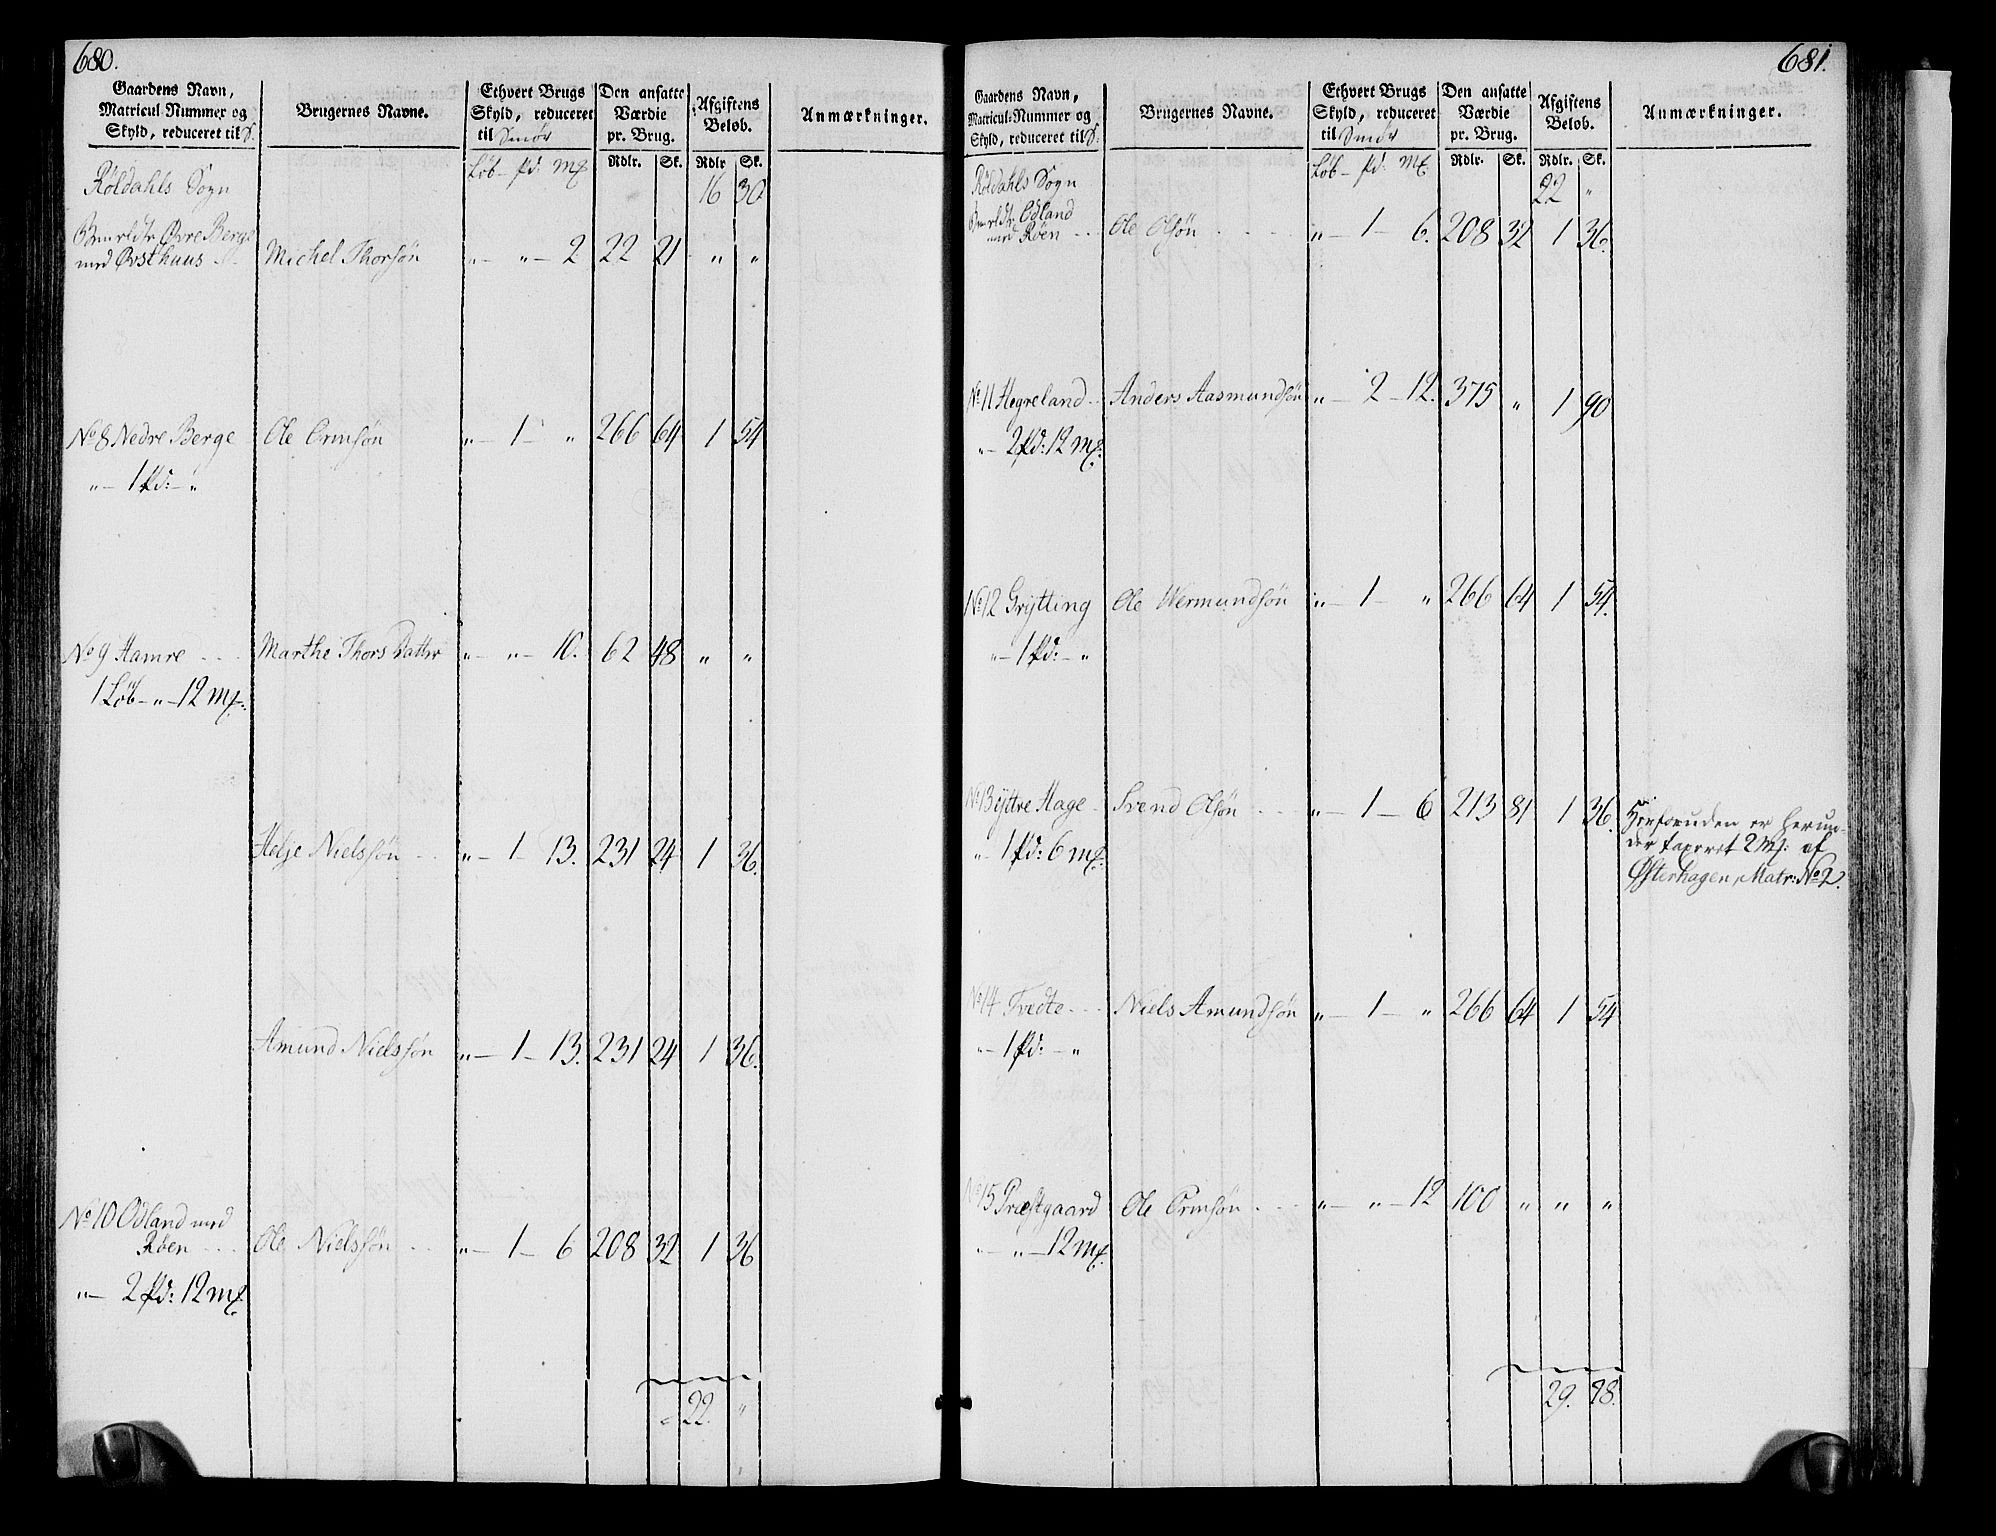 680.
Gaardens Navn, Matricul-Nummer og Skyld, reduceret til S. | Brugernes Navne. | Ethvert Brugs Skyld, reduceret til Smør | Den ansatte Værdie pr. Brug. | Afgiftens Beløb. | Anmærkninger.
Løb – pd: mk | Rdlr. | Sk. | Rdlr | Sk.
Røldahls Sogn 16 30
Øvre Berge
med Østhuus Michel Thorsøn „ – „ – 2 22 21 „ „
No 8 Nedre Berge Ole Ormsøn „ – 1 – „ 266 64 1 54
„ – 1 pd: – „
No 9 Hamre Marthe Thors Datter „ – „ – 10. 62 48 „ „
1 Løb – „ – 12 mk:
Helje Nielssøn „ – 1 – 13. 231 24 1 36.
Amund Nielssøn „ – 1 – 13. 231 24 1 36.
No 10 Odland med
Røen Ole Nielssøn „ – 1 – 6 208 32 1 36
„ – 2 pd: 12 mk
22. „
681.
Gaardens Navn, Matricul-Nummer og Skyld, reduceret til S. | Brugernes Navne. | Ethvert Brugs Skyld, reduceret til Smør | Den ansatte Værdie pr. Brug. | Afgiftens Beløb. | Anmærkninger.
Løb – pd: mk | Rdlr. | Sk. | Rdlr. | Sk.
Røldahls Sogn 22 „
Odland
med Røen Ole Olsøn „ – 1 – 6. 208 32 1 36.
No 11 Hegreland Anders Aasmundsøn „ – 2 – 12. 375 „ 1 90
„ – 2 pd: 12 mk:
No 12 Grytting Ole Wermundsøn „ – 1 – „ 266 64 1 54.
„ – 1 pd: – „
No 13 Yttre Hage Svend Olsøn „ – 1 – 6 213 81 1 36. Herforuden er herun-
„ – 1 pd: 6 mk: der taxeret 2 mk: af
Østerhagen, Matr: No 2.
No 14 Tvedte Niels Amundsøn „ – 1 – „ 266 64 1 54
„ – 1 pd: – „
No 15 Præstgaard Ole Ormsøn „ – „ – 12 100 „ „ „
„ – „ – 12 mk.
29. 18.